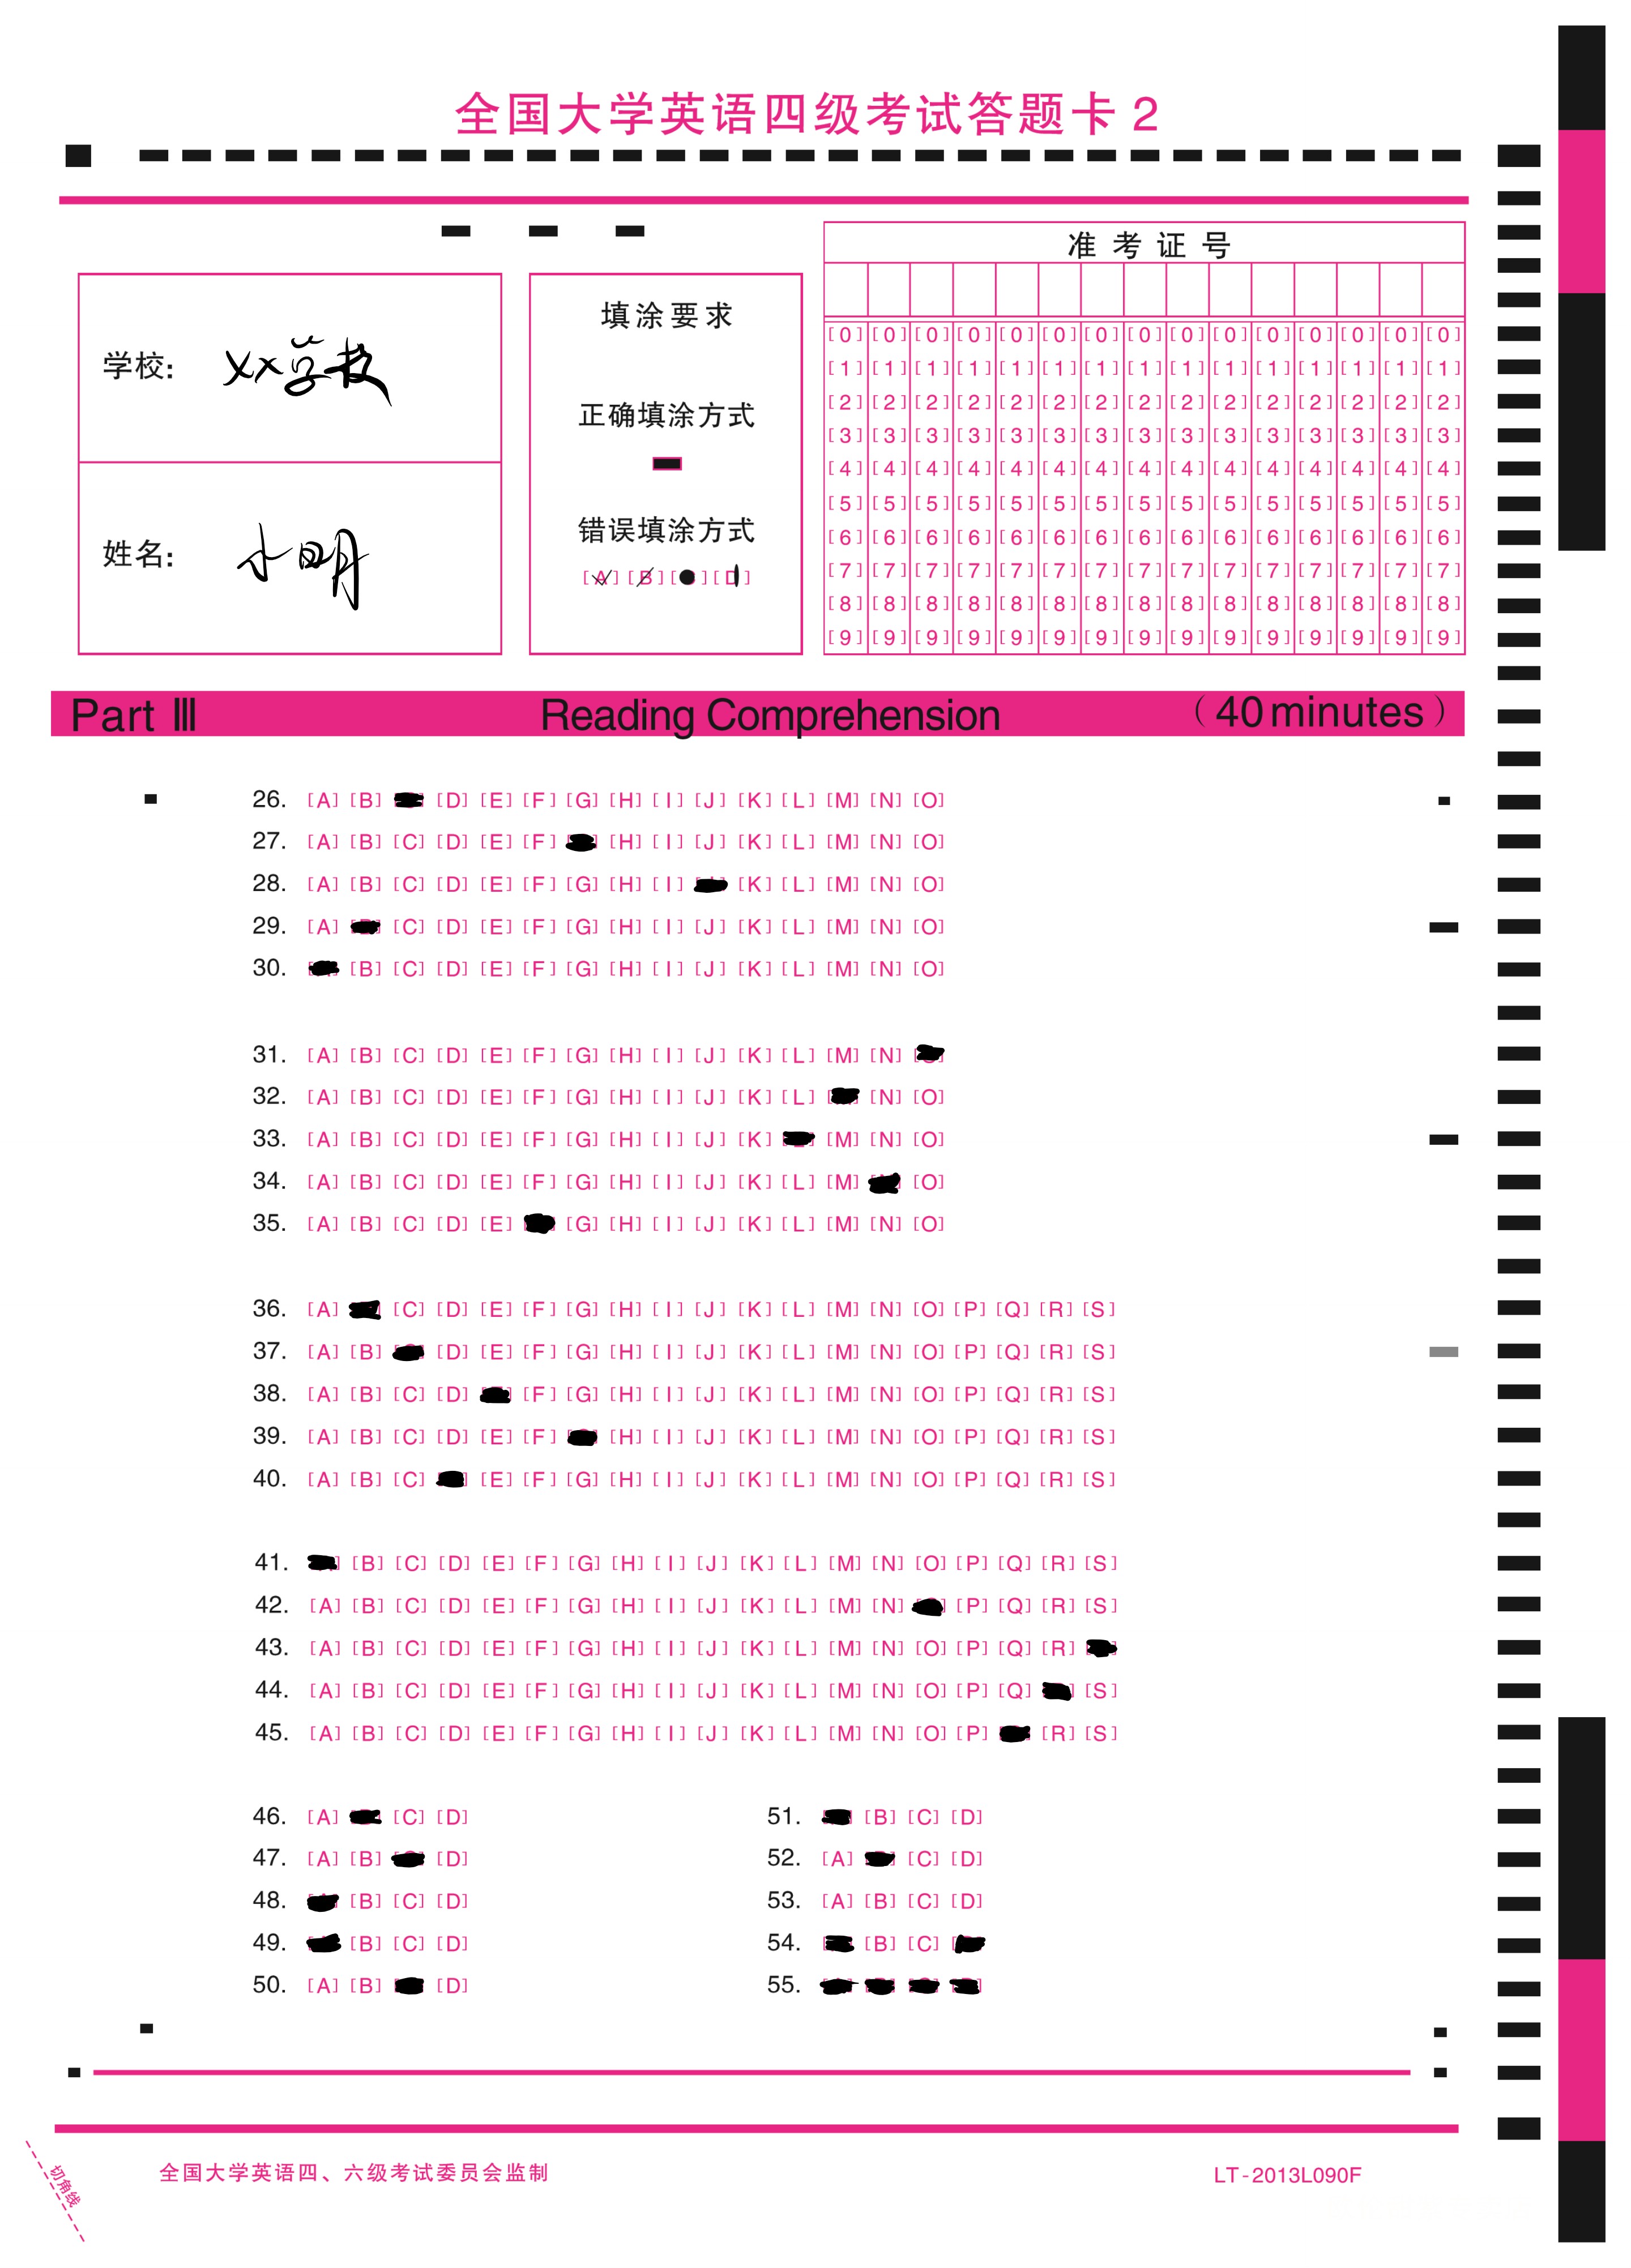 全国大学英语四级考试答题卡2
学校: xx学校
姓名: 小明
填涂要求
正确填涂方式
错误填涂方式
[A] [B] [ ] [D]
准考证号
[0] [0] [0] [0] [0] [0] [0] [0] [0] [0] [0] [0] [0] [0] [0]
[1] [1] [1] [1] [1] [1] [1] [1] [1] [1] [1] [1] [1] [1] [1]
[2] [2] [2] [2] [2] [2] [2] [2] [2] [2] [2] [2] [2] [2] [2]
[3] [3] [3] [3] [3] [3] [3] [3] [3] [3] [3] [3] [3] [3] [3]
[4] [4] [4] [4] [4] [4] [4] [4] [4] [4] [4] [4] [4] [4] [4]
[5] [5] [5] [5] [5] [5] [5] [5] [5] [5] [5] [5] [5] [5] [5]
[6] [6] [6] [6] [6] [6] [6] [6] [6] [6] [6] [6] [6] [6] [6]
[7] [7] [7] [7] [7] [7] [7] [7] [7] [7] [7] [7] [7] [7] [7]
[8] [8] [8] [8] [8] [8] [8] [8] [8] [8] [8] [8] [8] [8] [8]
[9] [9] [9] [9] [9] [9] [9] [9] [9] [9] [9] [9] [9] [9] [9]
Part Ⅲ Reading Comprehension (40 minutes)
26. [A] [B] [D] [E] [F] [G] [H] [I] [J] [K] [L] [M] [N] [O]
27. [A] [B] [C] [D] [E] [F] [H] [I] [J] [K] [L] [M] [N] [O]
28. [A] [B] [C] [D] [E] [F] [G] [H] [I] [K] [L] [M] [N] [O]
29. [A] [C] [D] [E] [F] [G] [H] [I] [J] [K] [L] [M] [N] [O]
30. [B] [C] [D] [E] [F] [G] [H] [I] [J] [K] [L] [M] [N] [O]
31. [A] [B] [C] [D] [E] [F] [G] [H] [I] [J] [K] [L] [M] [N]
32. [A] [B] [C] [D] [E] [F] [G] [H] [I] [J] [K] [L] [N] [O]
33. [A] [B] [C] [D] [E] [F] [G] [H] [I] [J] [K] [M] [N] [O]
34. [A] [B] [C] [D] [E] [F] [G] [H] [I] [J] [K] [L] [M] [O]
35. [A] [B] [C] [D] [E] [G] [H] [I] [J] [K] [L] [M] [N] [O]
36. [A] [C] [D] [E] [F] [G] [H] [I] [J] [K] [L] [M] [N] [O] [P] [Q] [R] [S]
37. [A] [B] [D] [E] [F] [G] [H] [I] [J] [K] [L] [M] [N] [O] [P] [Q] [R] [S]
38. [A] [B] [C] [D] [F] [G] [H] [I] [J] [K] [L] [M] [N] [O] [P] [Q] [R] [S]
39. [A] [B] [C] [D] [E] [F] [H] [I] [J] [K] [L] [M] [N] [O] [P] [Q] [R] [S]
40. [A] [B] [C] [E] [F] [G] [H] [I] [J] [K] [L] [M] [N] [O] [P] [Q] [R] [S]
41. [B] [C] [D] [E] [F] [G] [H] [I] [J] [K] [L] [M] [N] [O] [P] [Q] [R] [S]
42. [A] [B] [C] [D] [E] [F] [G] [H] [I] [J] [K] [L] [M] [N] [P] [Q] [R] [S]
43. [A] [B] [C] [D] [E] [F] [G] [H] [I] [J] [K] [L] [M] [N] [O] [P] [Q] [R]
44. [A] [B] [C] [D] [E] [F] [G] [H] [I] [J] [K] [L] [M] [N] [O] [P] [Q] [S]
45. [A] [B] [C] [D] [E] [F] [G] [H] [I] [J] [K] [L] [M] [N] [O] [P] [R] [S]
46. [A] [C] [D]
47. [A] [B] [D]
48. [B] [C] [D]
49. [B] [C] [D]
50. [A] [B] [D]
51. [B] [C] [D]
52. [A] [C] [D]
53. [A] [B] [C] [D]
54. [B] [C]
55.
切角线
全国大学英语四、六级考试委员会监制
LT-2013L090F